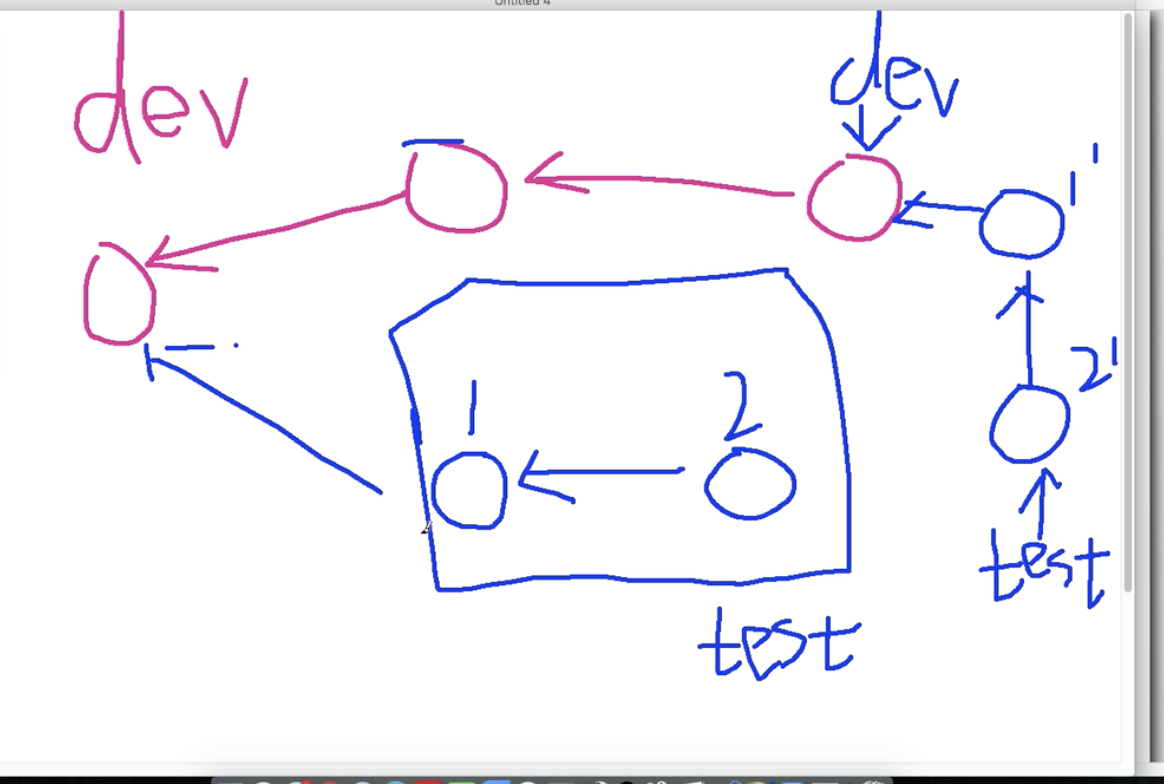 Untitled 4
dev
dev
1'
1
2
2'
test
test